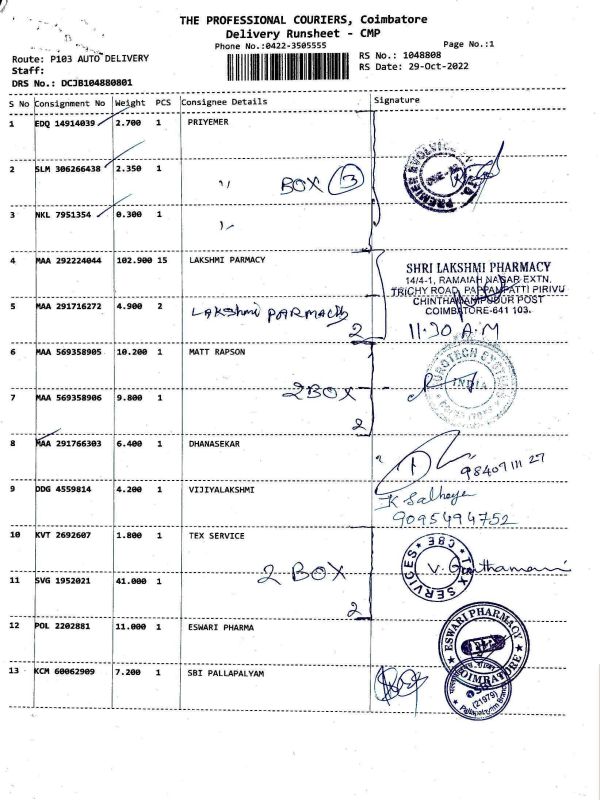 THE PROFESSIONAL COURIERS, Coimbatore
Delivery Runsheet - CMP
Phone No.:0422-3505555
Page No.:1
Route: P103 AUTO DELIVERY
RS No.: 1048808
Staff:
RS Date: 29-Oct-2022
DRS No.: DCJB104880801
S No Consignment No Weight PCS Consignee Details Signature
1 EDQ 14914039 2.700 1 PRIYEMER
2 SLM 306266438 2.350 1 ,, BOX 3
3 NKL 7951354 0.300 1 ,,
4 MAA 292224044 102.900 15 LAKSHMI PARMACY
SHRI LAKSHMI PHARMACY
14/4-1, RAMAIAH NAGAR EXTN,
TRICHY ROAD, PAPPAMPATTI PIRIVU
CHINTHAMANIPUDUR POST
COIMBATORE-641 103.
5 MAA 291716272 4.900 2 LAKshmi PARMACY
2
11.30 A.M
6 MAA 569358905 10.200 1 MATT RAPSON
2 BOX
INDIA
7 MAA 569358906 9.800 1
2
8 MAA 291766303 6.400 1 DHANASEKAR
9 DDG 4559814 4.200 1 VIJIYALAKSHMI
9095494752
10 KVT 2692607 1.800 1 TEX SERVICE
CBE TEX SERVICES
11 SVG 1952021 41.000 1
2 BOX
2
12 POL 2202881 11.000 1 ESWARI PHARMA
ESWARI PHARMACY
COIMBATORE
13 KCM 60062909 7.200 1 SBI PALLAPALYAM
SBI
(21979)